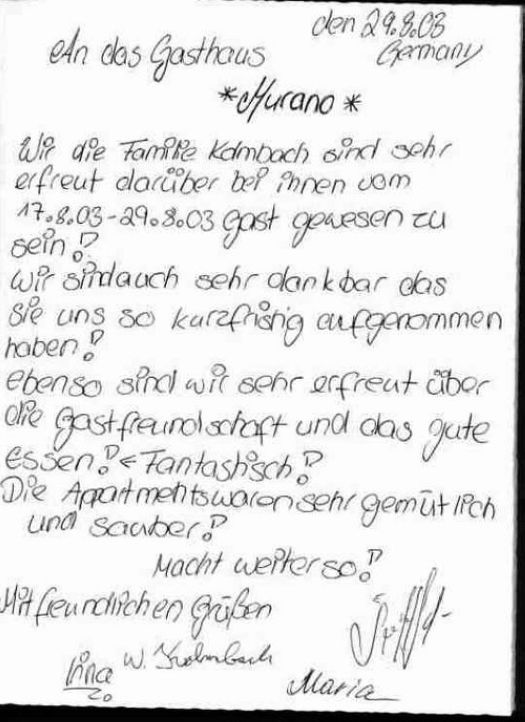 den 29.8.03
An das Gasthaus Germany
*Murano*
Wir die Familie Kolmbach sind sehr
erfreut darüber bei ihnen vom
17.8.03-29.8.03 gast gewesen zu
sein!
wir sind auch sehr dankbar das
sie uns so kurzfristig aufgenommen
haben!
ebenso sind wir sehr erfreut über
die gastfreundschaft und das gute
essen! < Fantastisch!
Die Appartments waren sehr gemütlich
und sauber!
Macht weiter so!
Mit freundlichen Grüßen
W. Kolmbach
Maria